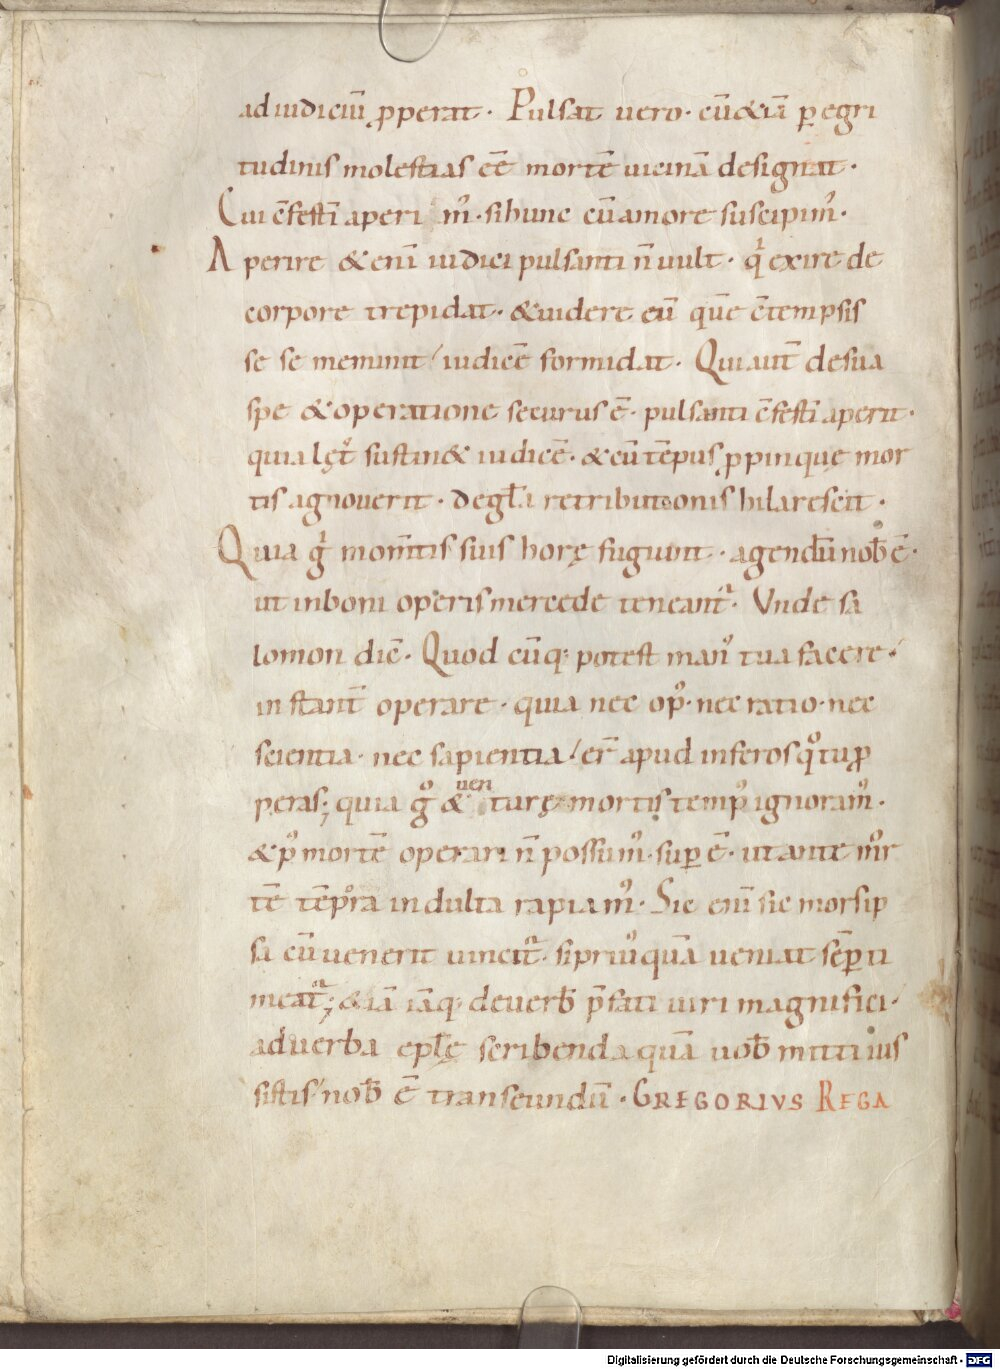 ad iudiciū ꝓperat· Pulsat uero· cū &iā ꝑ egri
tudinis molestias eē mortē uicinā designat·
Cui c̄festī aperimꝰ· si hunc cū amore suscipimꝰ·
Aperire &enī iudici pulsanti n̄ uult· qͥ exire de
corpore trepidat· & uidere eū quē c̄tempsis
se se meminit iudicē formidat· Qui aut̄ de sua
spe & operatione securus ē· pulsanti c̄festī aperit·
quia lęt sustin& iudicē· & cū tēpus ꝓpinquę mor
tis agnouerit· de gl̄a retributionis hilarescit·
Quia gͥ mom̄tis suis horę fugiunt· agendū nob̄ ē·
ut in boni operis mercede teneant᷑· Vnde sa
lomon dic̄· Quod cūq; potest manꝰ tua facere·
instant̄ operare· quia nec opꝰ· nec ratio· nec
scientia· nec sapientia er̄ apud inferos qͦ tu ꝓ
peras; quia gͦ & uenturę mortis tempꝰ ignoramꝰ·
& pꝰ mortē operari n̄ possumꝰ· suꝑ ē· ut ante mor
tē tēpora indulta rapiamꝰ· Sic enī sic mors ip
sa cū uenerit uincit᷑· si priusquā ueniat sēꝑ ti
meat᷑; &iā iāq; de uerb̄ p̄fati uiri magnifici·
ad uerba epl̄ę scribenda quā uob̄ mitti ius
sistis nob̄ ē transeundū· GREGORIVS REGA
Digitalisierung gefördert durch die Deutsche Forschungsgemeinschaft - DFG